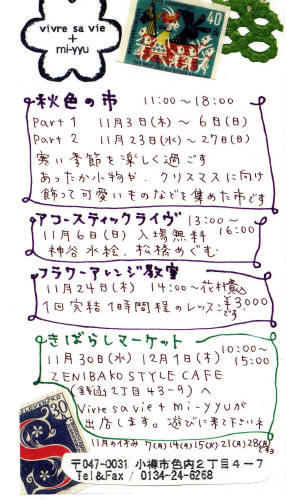 vivre sa vie
+
mi-yyu
40
秋色の市 11:00~18:00
Part 1 11月3日(木)~6日(日)
Part 2 11月23日(水)~27日(日)
寒い季節を楽しく過ごす
あったか小物や、クリスマスに向け
飾って可愛いものなどを集めた市です
アコースティックライヴ 13:00~
16:00
11月6日(日) 入場無料
神谷水絵、松橋めぐむ
フラワーアレンジ教室
11月24日(木) 14:00~ 花材費込
¥3,000
1回完結1時間程のレッスンです
きばらしマーケット
11月30日(水) 12月1日(木) 10:00~
15:00
ZENIBAKO STYLE CAFE
(銭函2丁目43-9)へ
Vivre sa vie + mi-yyuが
出店します。遊びに来て下さいネ
11月の休み 7(月)14(月)15(火)21(月)28(月)ですヨ
30
〒047-0031 小樽市色内2丁目4-7
Tel&Fax / 0134-24-6268